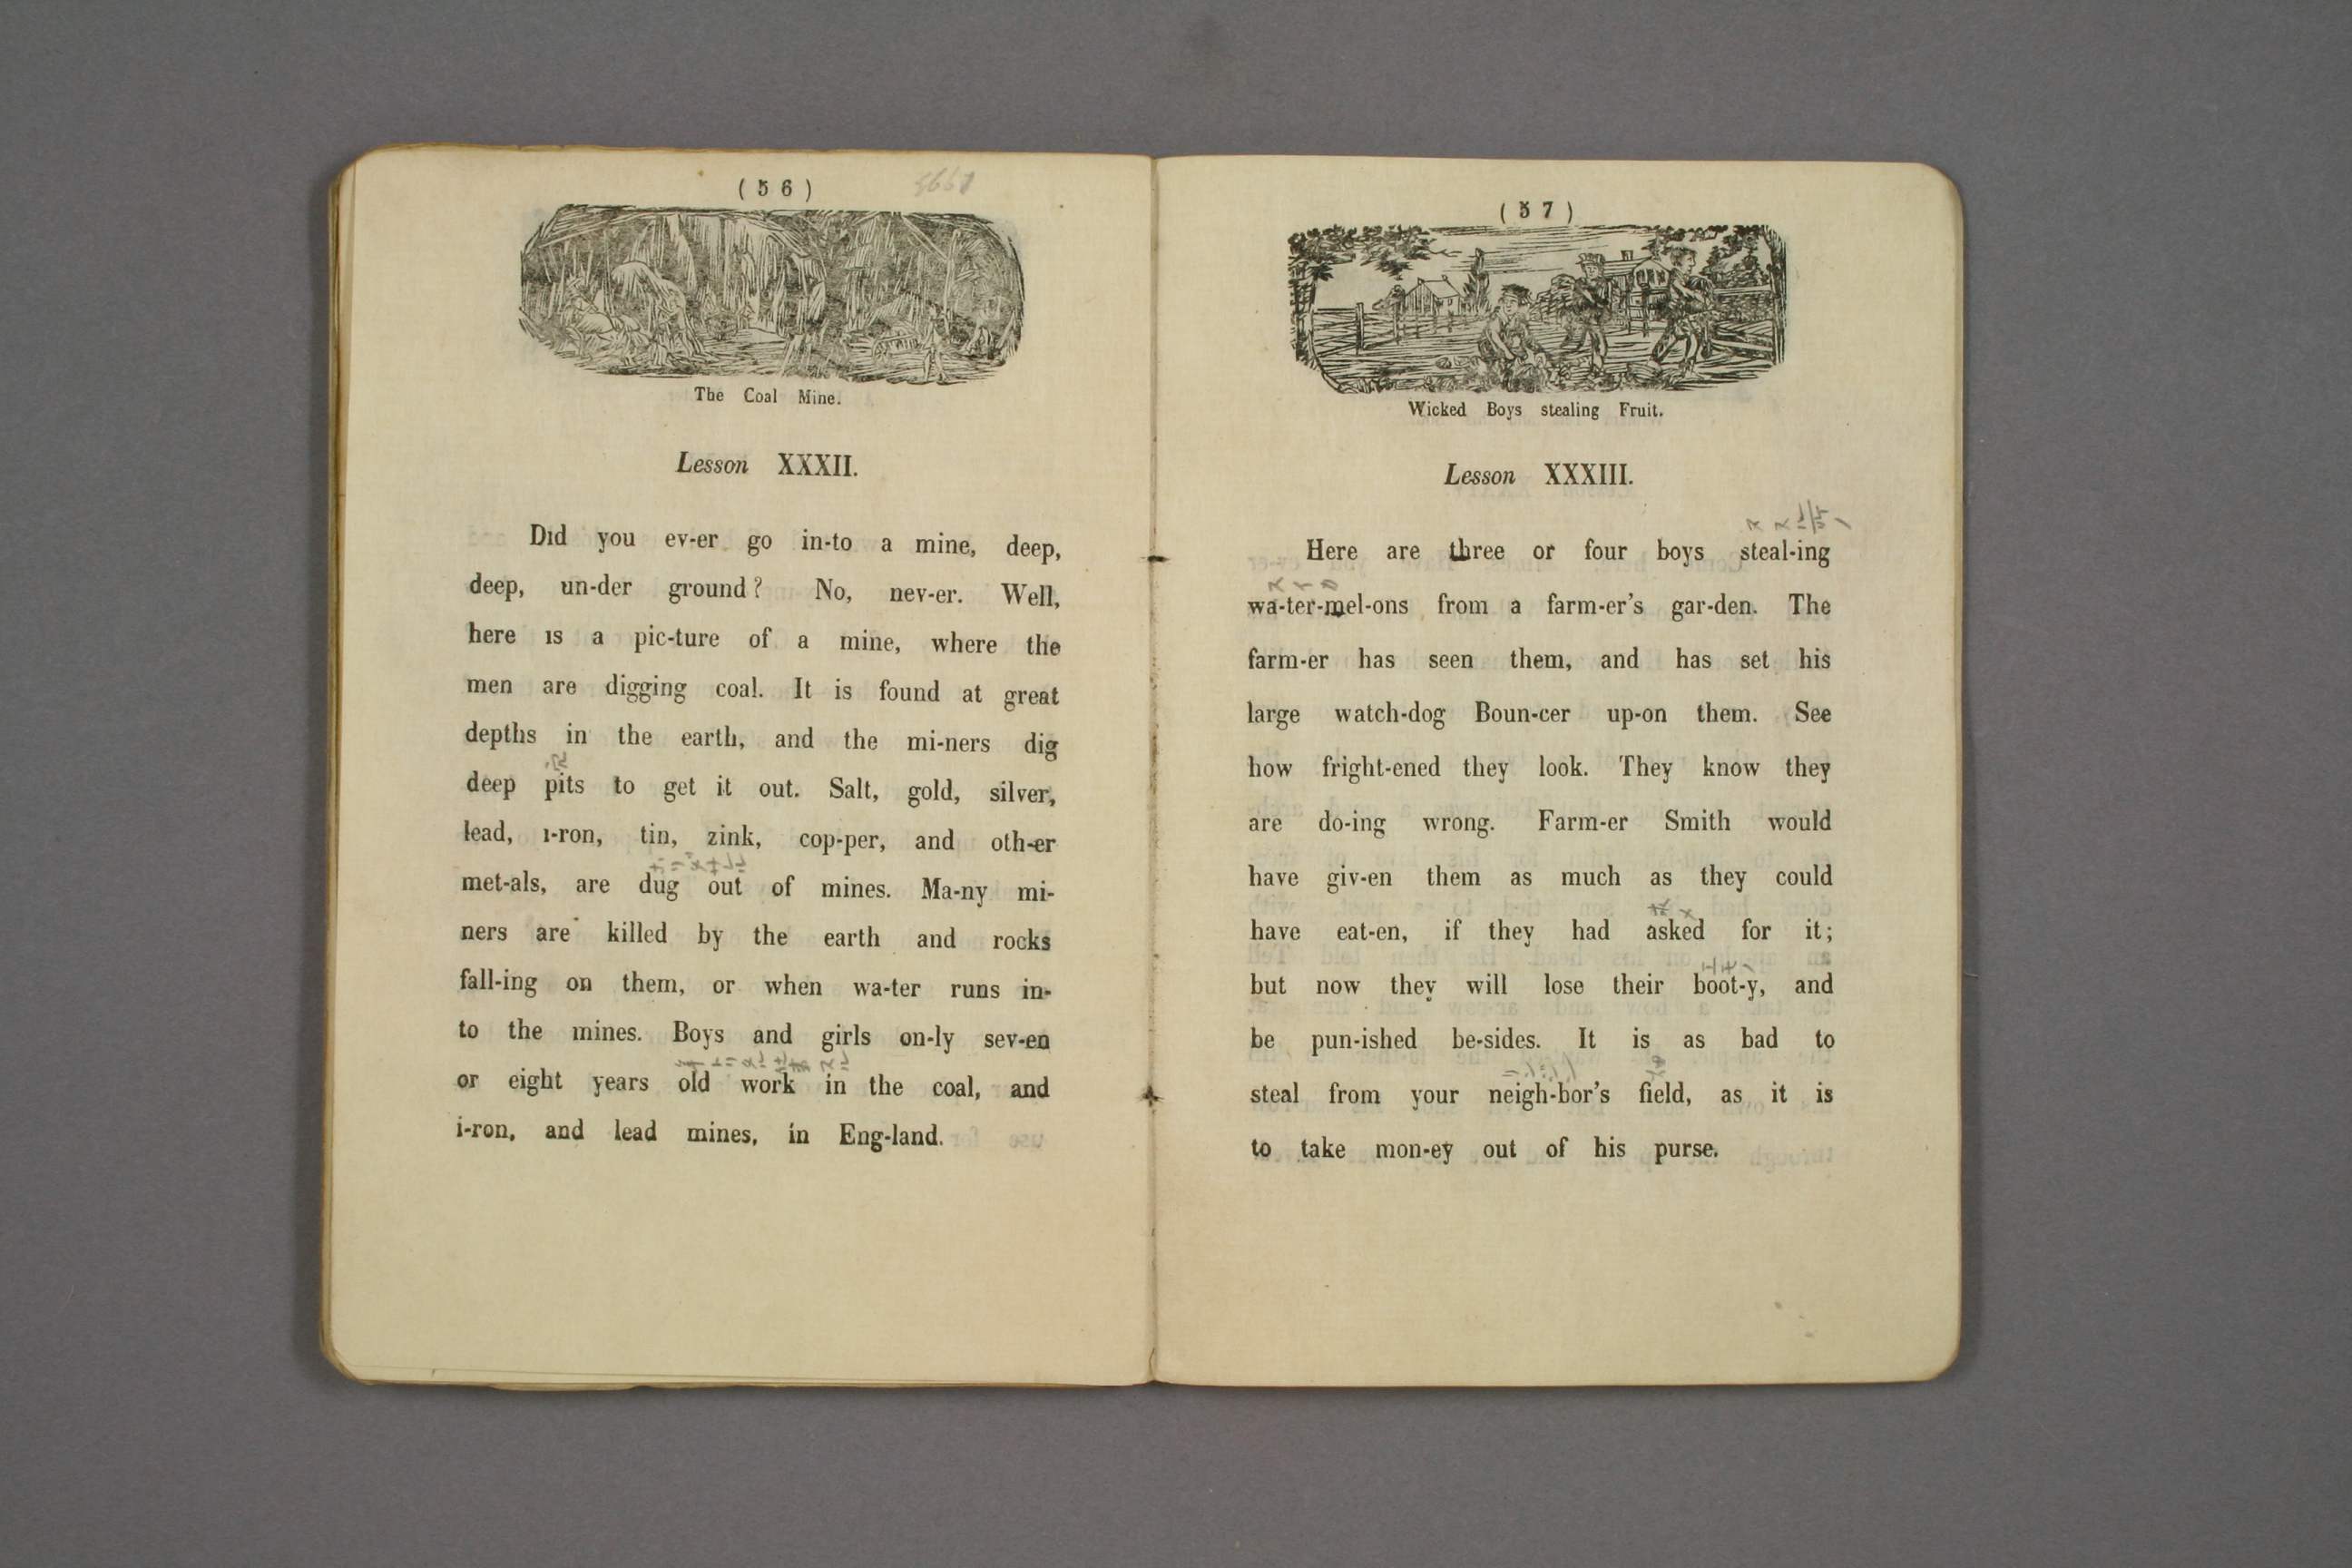 ( 5 6 )
The Coal Mine.
Lesson XXXII.
Did you ev-er go in-to a mine, deep,
deep, un-der ground? No, nev-er. Well,
here is a pic-ture of a mine, where the
men are digging coal. It is found at great
depths in the earth, and the mi-ners dig
deep pits to get it out. Salt, gold, silver,
lead, i-ron, tin, zink, cop-per, and oth-er
met-als, are dug out of mines. Ma-ny mi-
ners are killed by the earth and rocks
fall-ing on them, or when wa-ter runs in-
to the mines. Boys and girls on-ly sev-en
or eight years old work in the coal, and
i-ron, and lead mines, in Eng-land.
( 5 7 )
Wicked Boys stealing Fruit.
Lesson XXXIII.
Here are three or four boys steal-ing
wa-ter-mel-ons from a farm-er's gar-den. The
farm-er has seen them, and has set his
large watch-dog Boun-cer up-on them. See
how fright-ened they look. They know they
are do-ing wrong. Farm-er Smith would
have giv-en them as much as they could
have eat-en, if they had asked for it;
but now they will lose their boot-y, and
be pun-ished be-sides. It is as bad to
steal from your neigh-bor's field, as it is
to take mon-ey out of his purse.